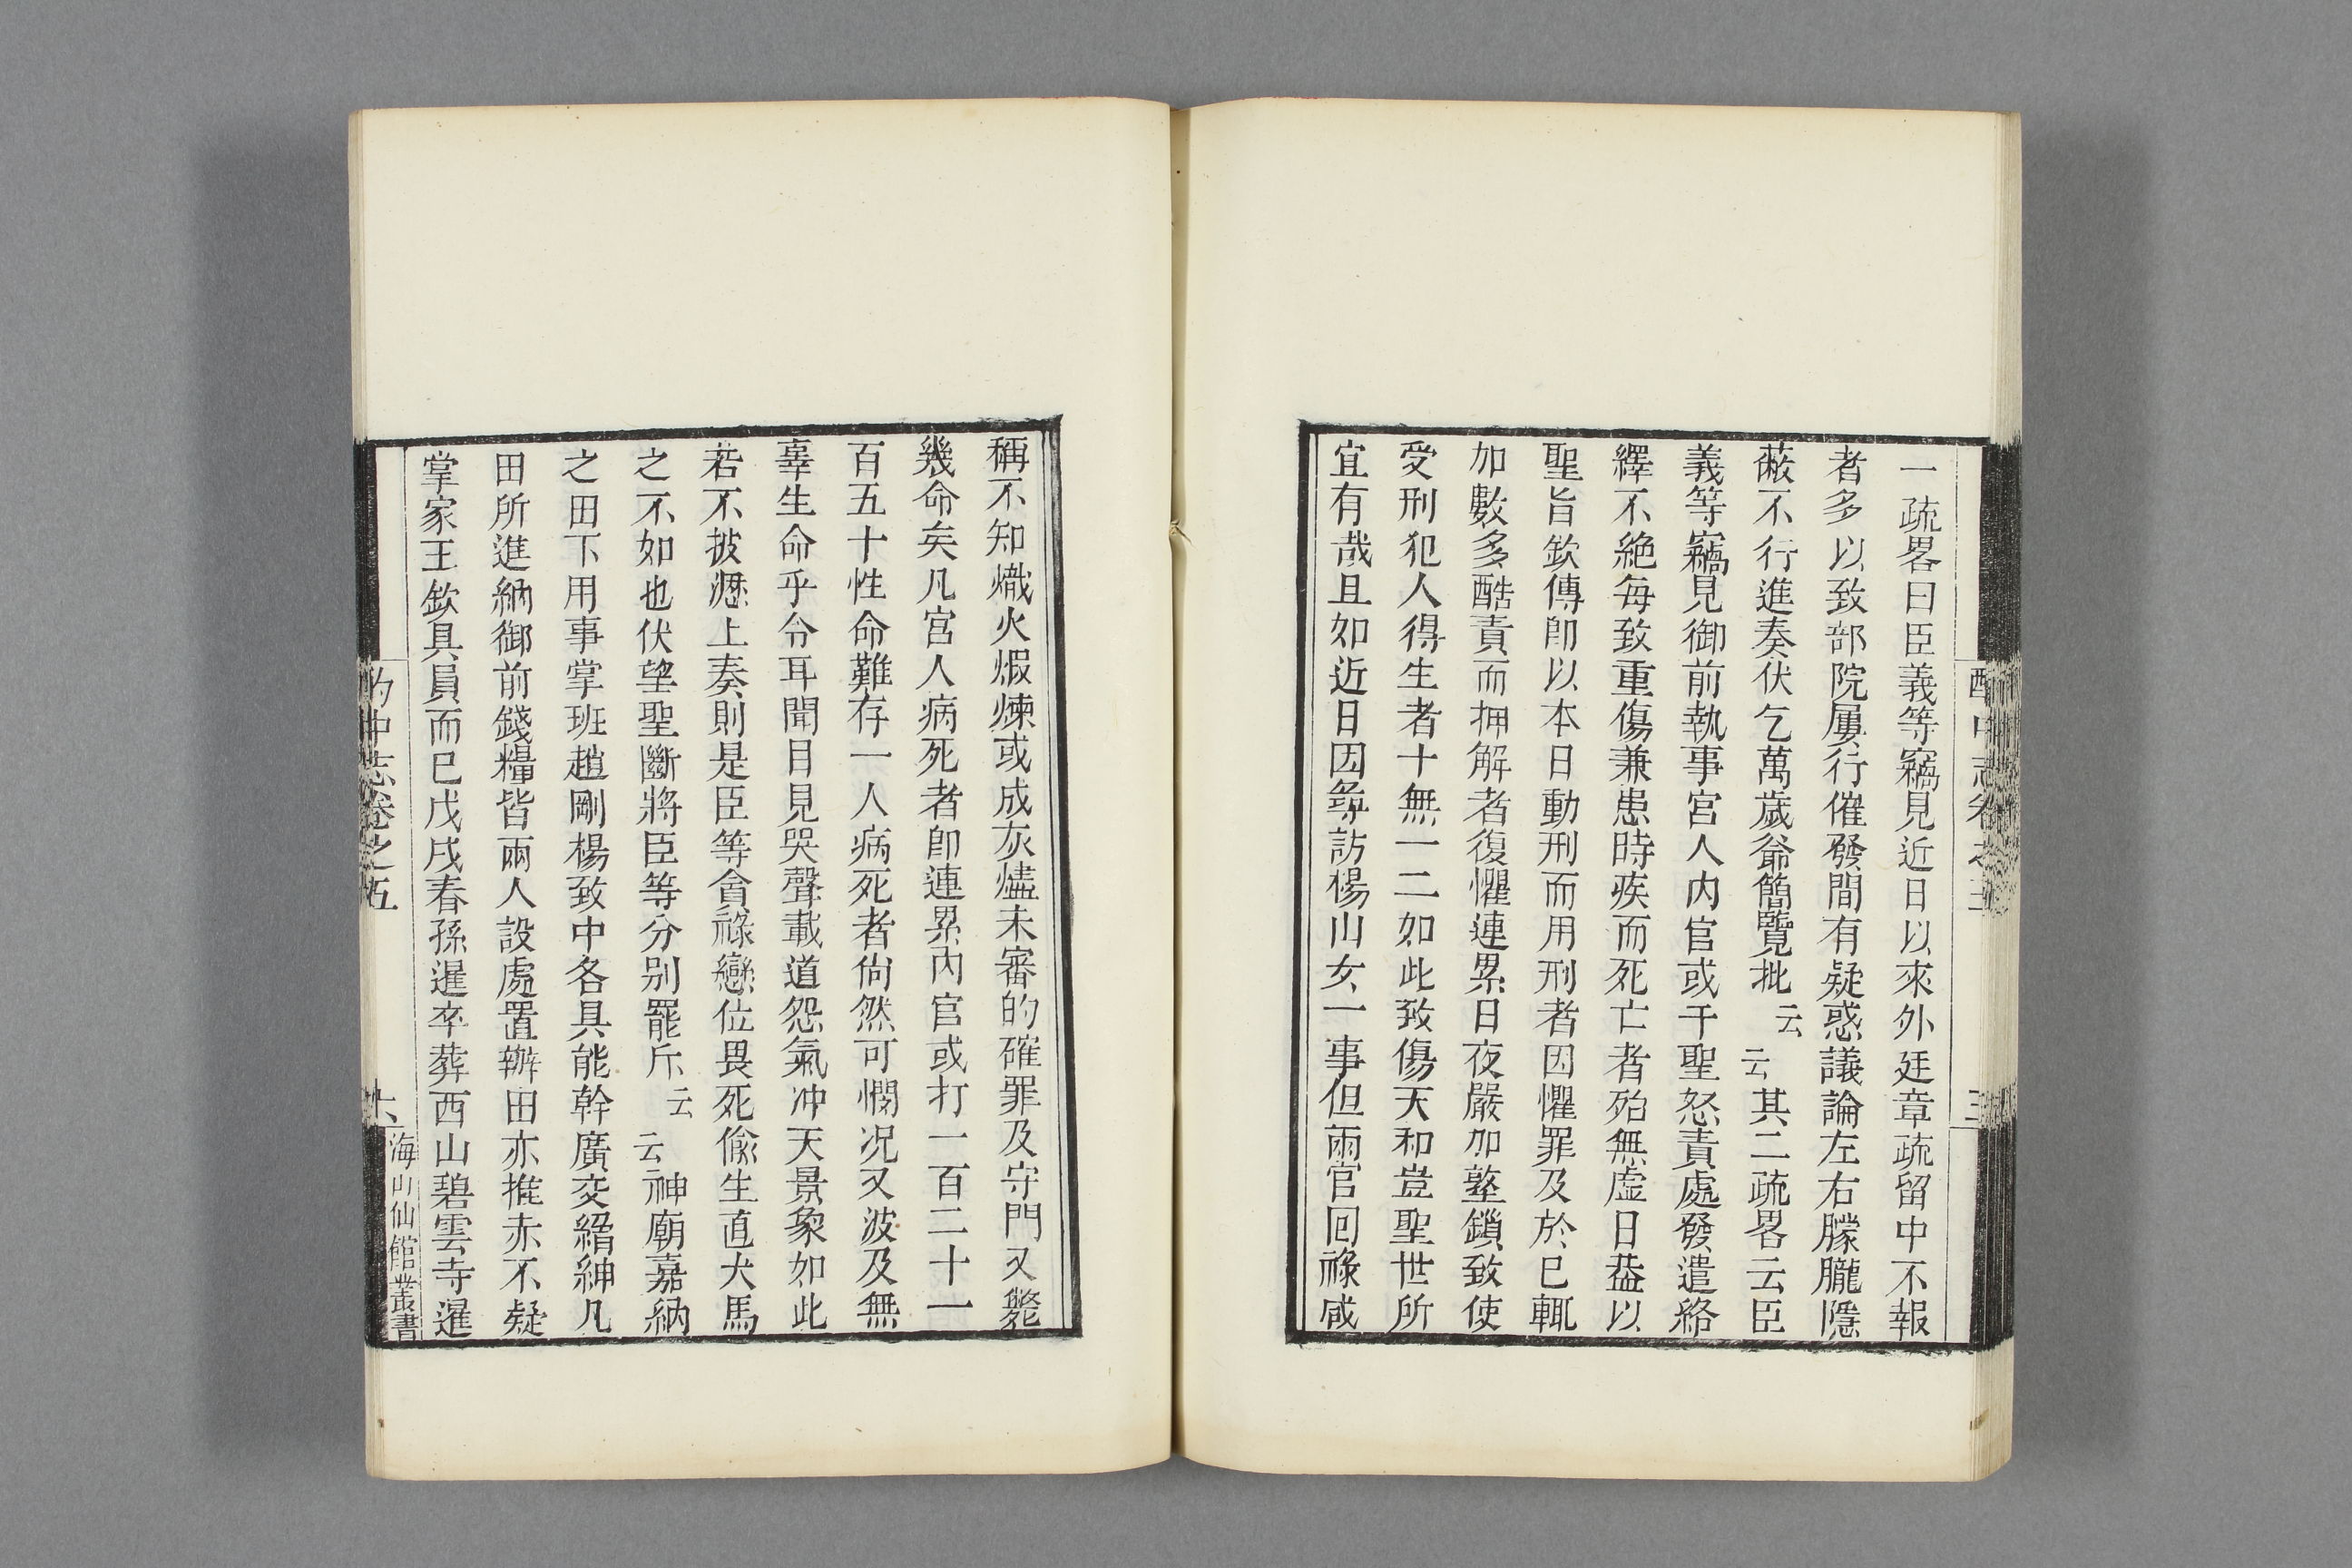 一疏畧曰臣義等竊見近日以來外廷章疏留中不報
者多以致部院屢行催發間有疑惑議論左右朦朧隱
蔽不行進奏伏乞萬歲爺簡覽批云云其二疏畧云臣
義等竊見御前執事宮人內官或干聖怒責處發遣絡
繹不絶每致重傷兼患時疾而死亡者殆無虛日葢以
聖旨欽傳卽以本日動刑而用刑者因懼罪及於已輒
加數多酷責而押解者復懼連累日夜嚴加墜鎖致使
受刑犯人得生者十無一二如此致傷天和豈聖世所
宜有哉且如近日因尋訪楊山女一事但兩官回祿咸
稱不知熾火煆煉或成灰燼未審的確罪及守門又斃
幾命矣凡宮人病死者卽連累內官或打一百二十一
百五十性命難存一人病死者尙然可憫况又波及無
辜生命乎今耳聞目見哭聲載道怨氣冲天景象如此
若不披瀝上奏則是臣等貪祿戀位畏死偸生直犬馬
之不如也伏望聖斷將臣等分别罷斥云云神廟嘉納
之田下用事掌班趙剛楊致中各具能幹廣交縉紳凡
田所進納御前錢糧皆兩人設處置辦田亦推赤不疑
掌家王欽具員而已戊戌春孫暹卒葬西山碧雲寺暹
酌中志卷之五
六
海山仙館叢書